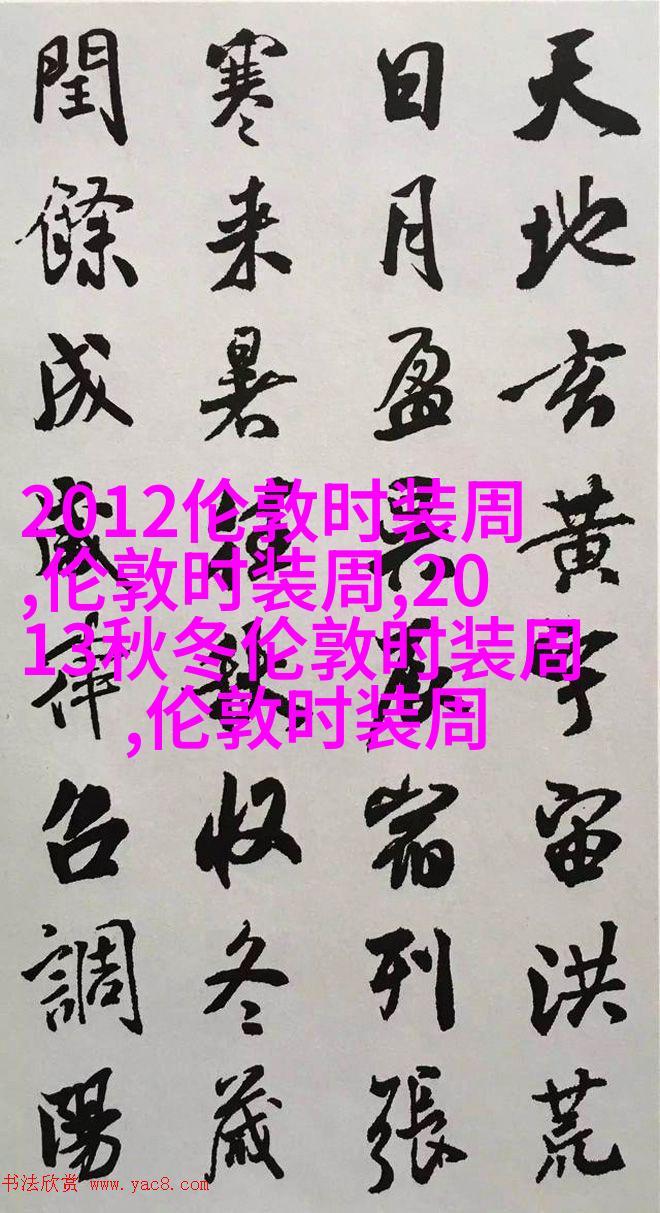 天地玄黃宇宙洪荒
日月盈昃辰宿列張
寒来暑往秋收冬藏
閏餘成歲律召調陽
2012伦敦时装周
,伦敦时装周,20
13秋冬伦敦时装周
,伦敦时装周
书法欣赏 www.yac8.com